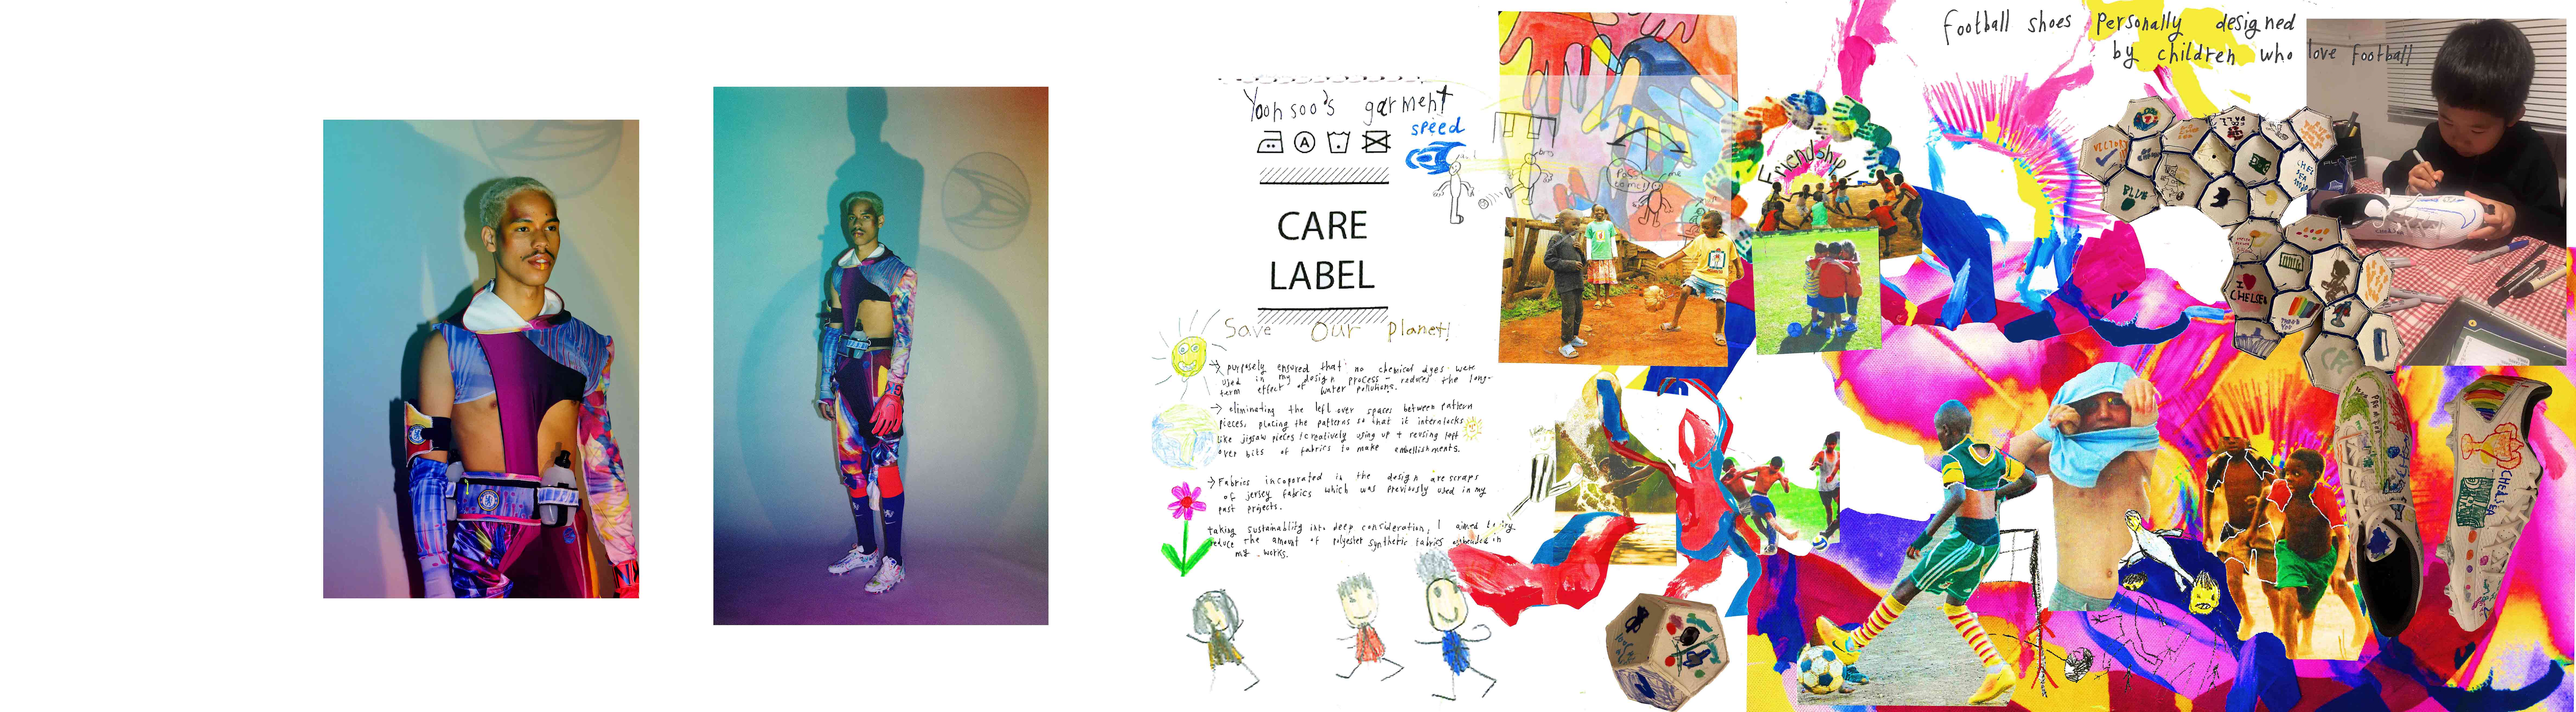 Yoonsoo's garment
A
CARE
LABEL
Save Our Planet!
→ purposely ensured that no chemical dyes were
used in my design process - reduces the long-
term effect of water pollutions.
→ eliminating the left over spaces between pattern
pieces, placing the patterns so that it interlocks
like jigsaw pieces / creatively using up + reusing left
over bits of fabrics to make embellishments.
→ Fabrics incoporated in the design are scraps
of jersey fabrics which was previously used in my
past projects.
taking sustainability into deep consideration, I aimed to try
reduce the amount of polyester synthetic fabrics in
my works.
speed
me
Friendship
football shoes personally designed
by children who love football
VICTORY
BLUE
I
CHELSEA
THANK
YOU
CHELSEA